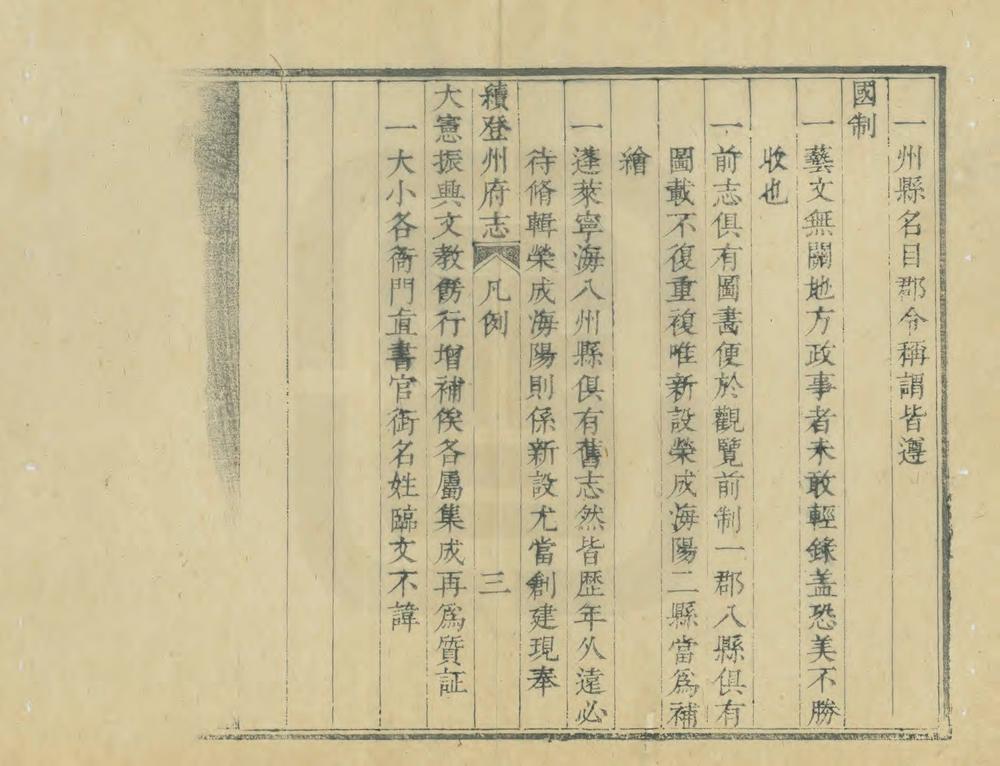 一州縣名目郡今稱謂皆遵
國制
一藝文無關地方政事者未敢輕錄盖恐美不勝
收也
一前志俱有圖畵便於觀覽前制一郡八縣俱有
圖載不復重複唯新設榮成海陽二縣當爲補
繪
一蓬萊寧海八州縣俱有舊志然皆歷年久遠必
待脩輯榮成海陽則係新設尤當創建現奉
續登州府志 凡例 三
大憲振興文教飭行增補俟各屬集成再爲質証
一大小各衙門直書官銜名姓臨文不諱